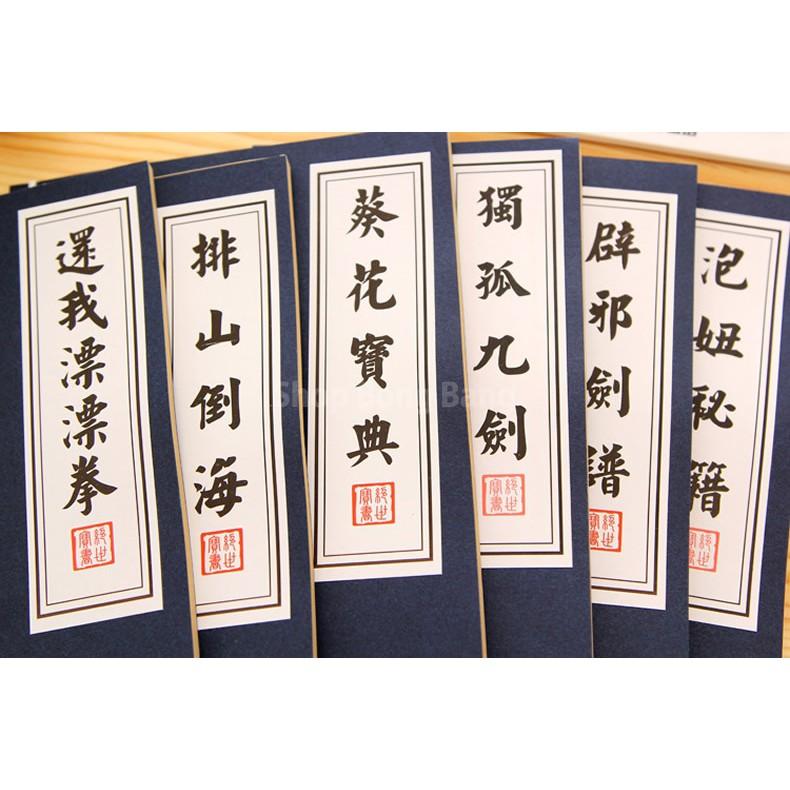 還我漂漂拳
絕世寶書
排山倒海
絕世寶書
葵花寶典
絕世寶書
獨孤九劍
絕世寶書
辟邪劍譜
絕世寶書
泡妞秘籍
絕世寶書
Shop Bong Bang